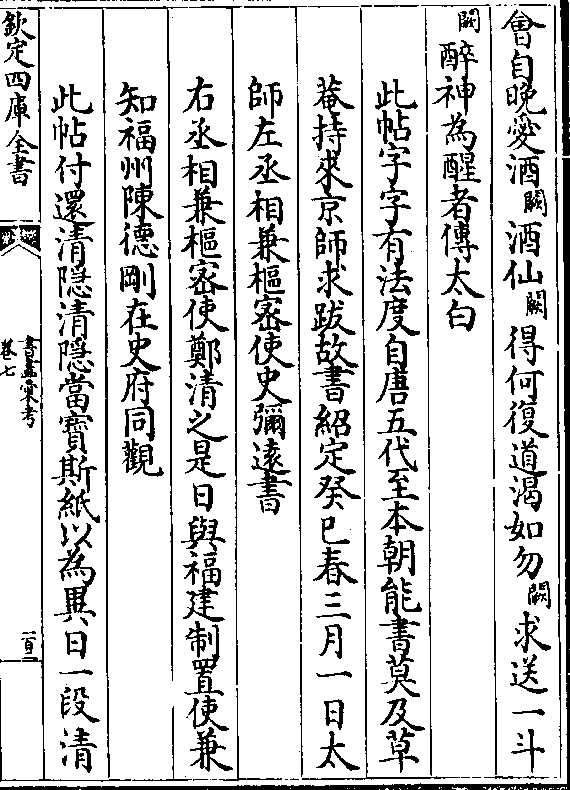 會自晚愛酒闕酒仙闕得何復道渴如勿闕求送一斗
闕醉神為醒者傳太白
此帖字字有法度自唐五代至本朝能書莫及草
菴持來京師求跋故書紹定癸巳春三月一日太
師左丞相兼樞密使史彌遠書
右丞相兼樞密使鄭清之是日與福建制置使兼
知福州陳德剛在史府同觀
此帖付還清隠清隠當寳斯紙以為異日一段清
欽定四庫全書
書畫彚考
卷七
一百二